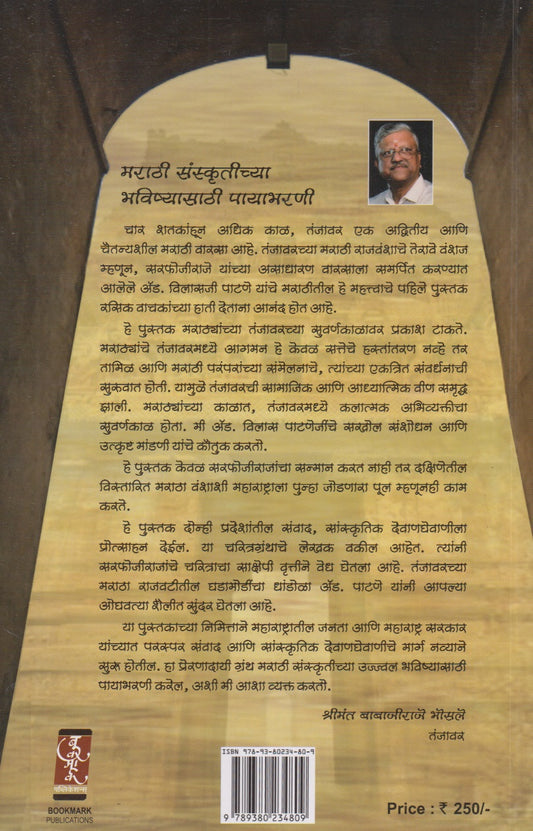 मराठी संस्कृतीच्या
भविष्यासाठी पायाभरणी
चार शतकांहून अधिक काळ, तंजावर एक अद्वितीय आणि
चैतन्यशील मराठी वारसा आहे. तंजावरच्या मराठी राजवंशाचे तेरावे वंशज
म्हणून, सरफोजीराजे यांच्या असाधारण वारसाला समर्पित करण्यात
आलेले ॲड. विलासजी पाटणे यांचे मराठीतील हे महत्त्वाचे पहिले पुस्तक
रसिक वाचकांच्या हाती देताना आनंद होत आहे.
हे पुस्तक मराठ्यांच्या तंजावरच्या सुवर्णकाळावर प्रकाश टाकते.
मराठ्यांचे तंजावरमध्ये आगमन हे केवळ सत्तेचे हस्तांतरण नव्हे तर
तामिळ आणि मराठी परंपरांच्या संमेलनाचे, त्यांच्या एकत्रित संवर्धनाची
सुरूवात होती. यामुळे तंजावरची सामाजिक आणि आध्यात्मिक वीण समृद्ध
झाली. मराठ्यांच्या काळात, तंजावरमध्ये कलात्मक अभिव्यक्तीचा
सुवर्णकाळ होता. मी ॲड. विलास पाटणेजींचे सखोल संशोधन आणि
उत्कृष्ट मांडणी यांचे कौतुक करतो.
हे पुस्तक केवळ सरफोजीराजांचा सन्मान करत नाही तर दक्षिणेतील
विस्तारित मराठा वंशाशी महाराष्ट्राला पुन्हा जोडणारा पूल म्हणूनही काम
करते.
हे पुस्तक दोन्ही प्रदेशांतील संवाद, सांस्कृतिक देवाणघेवाणीला
प्रोत्साहन देईल. या चरित्रग्रंथाचे लेखक वकील आहेत. त्यांनी
सरफोजीराजांचे चरित्राचा साक्षेपी वृत्तीने वेध घेतला आहे. तंजावरच्या
मराठा राजवटीतील घडामोडींचा धांडोळा ॲड. पाटणे यांनी आपल्या
ओघवत्या शैलीत सुंदर घेतला आहे.
या पुस्तकाच्या निमित्ताने महाराष्ट्रातील जनता आणि महाराष्ट्र सरकार
यांच्यात परस्पर संवाद आणि सांस्कृतिक देवाणघेवाणीचे मार्ग नव्याने
सुरू होतील. हा प्रेरणादायी ग्रंथ मराठी संस्कृतीच्या उज्ज्वल भविष्यासाठी
पायाभरणी करेल, अशी मी आशा व्यक्त करतो.
श्रीमंत बाबाजीराजे भोसले
तंजावर
बुकमार्क
पब्लिकेशन्स
BOOKMARK
PUBLICATIONS
ISBN 978-93-80234-80-9
9 789380 234809
Price : ₹ 250/-